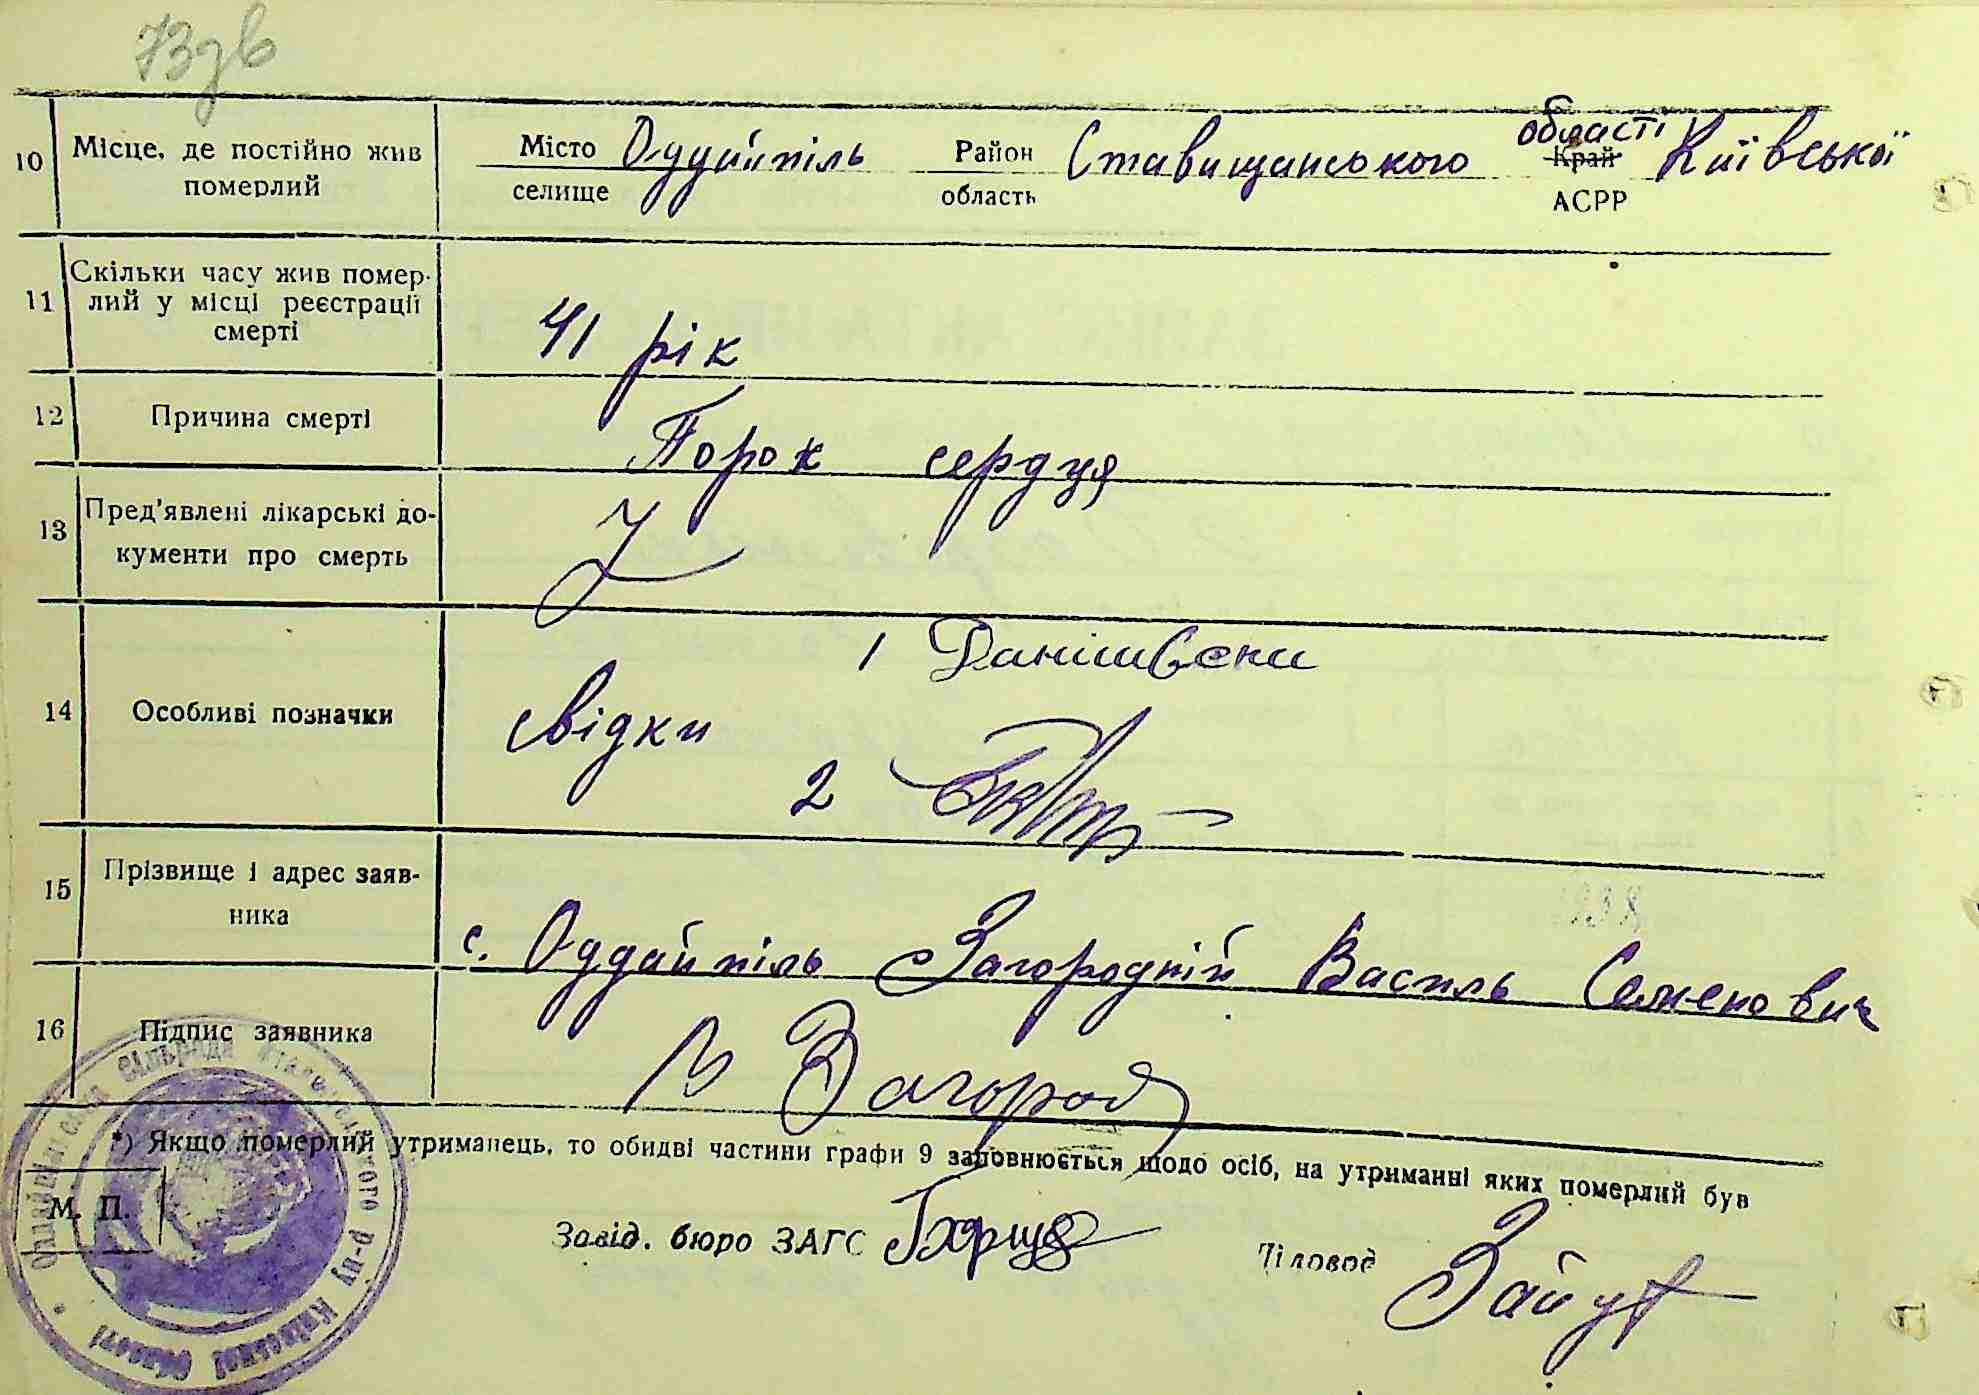 73 зв
10 Місце, де постійно жив померлий Місто селище Оддайпіль Район область Ставищанського області Край АСРР Київської
11 Скільки часу жив помер-
лий у місці реєстрації
смерті
41 рік
12 Причина смерті Порок сердця
13 Пред'явлені лікарські до-
кументи про смерть
14 Особливі позначки
свідки
1
2
15 Прізвище і адрес заяв-
ника
с. Оддайпіль Загородній Василь Семенович
16 Підпис заявника
В Загород
*) Якщо померлий утриманець, то обидві частини графи 9 заповнюється щодо осіб, на утриманні яких померлий був
М. П.
Завід. бюро ЗАГС
Діловод
сільради р-ну Київської області